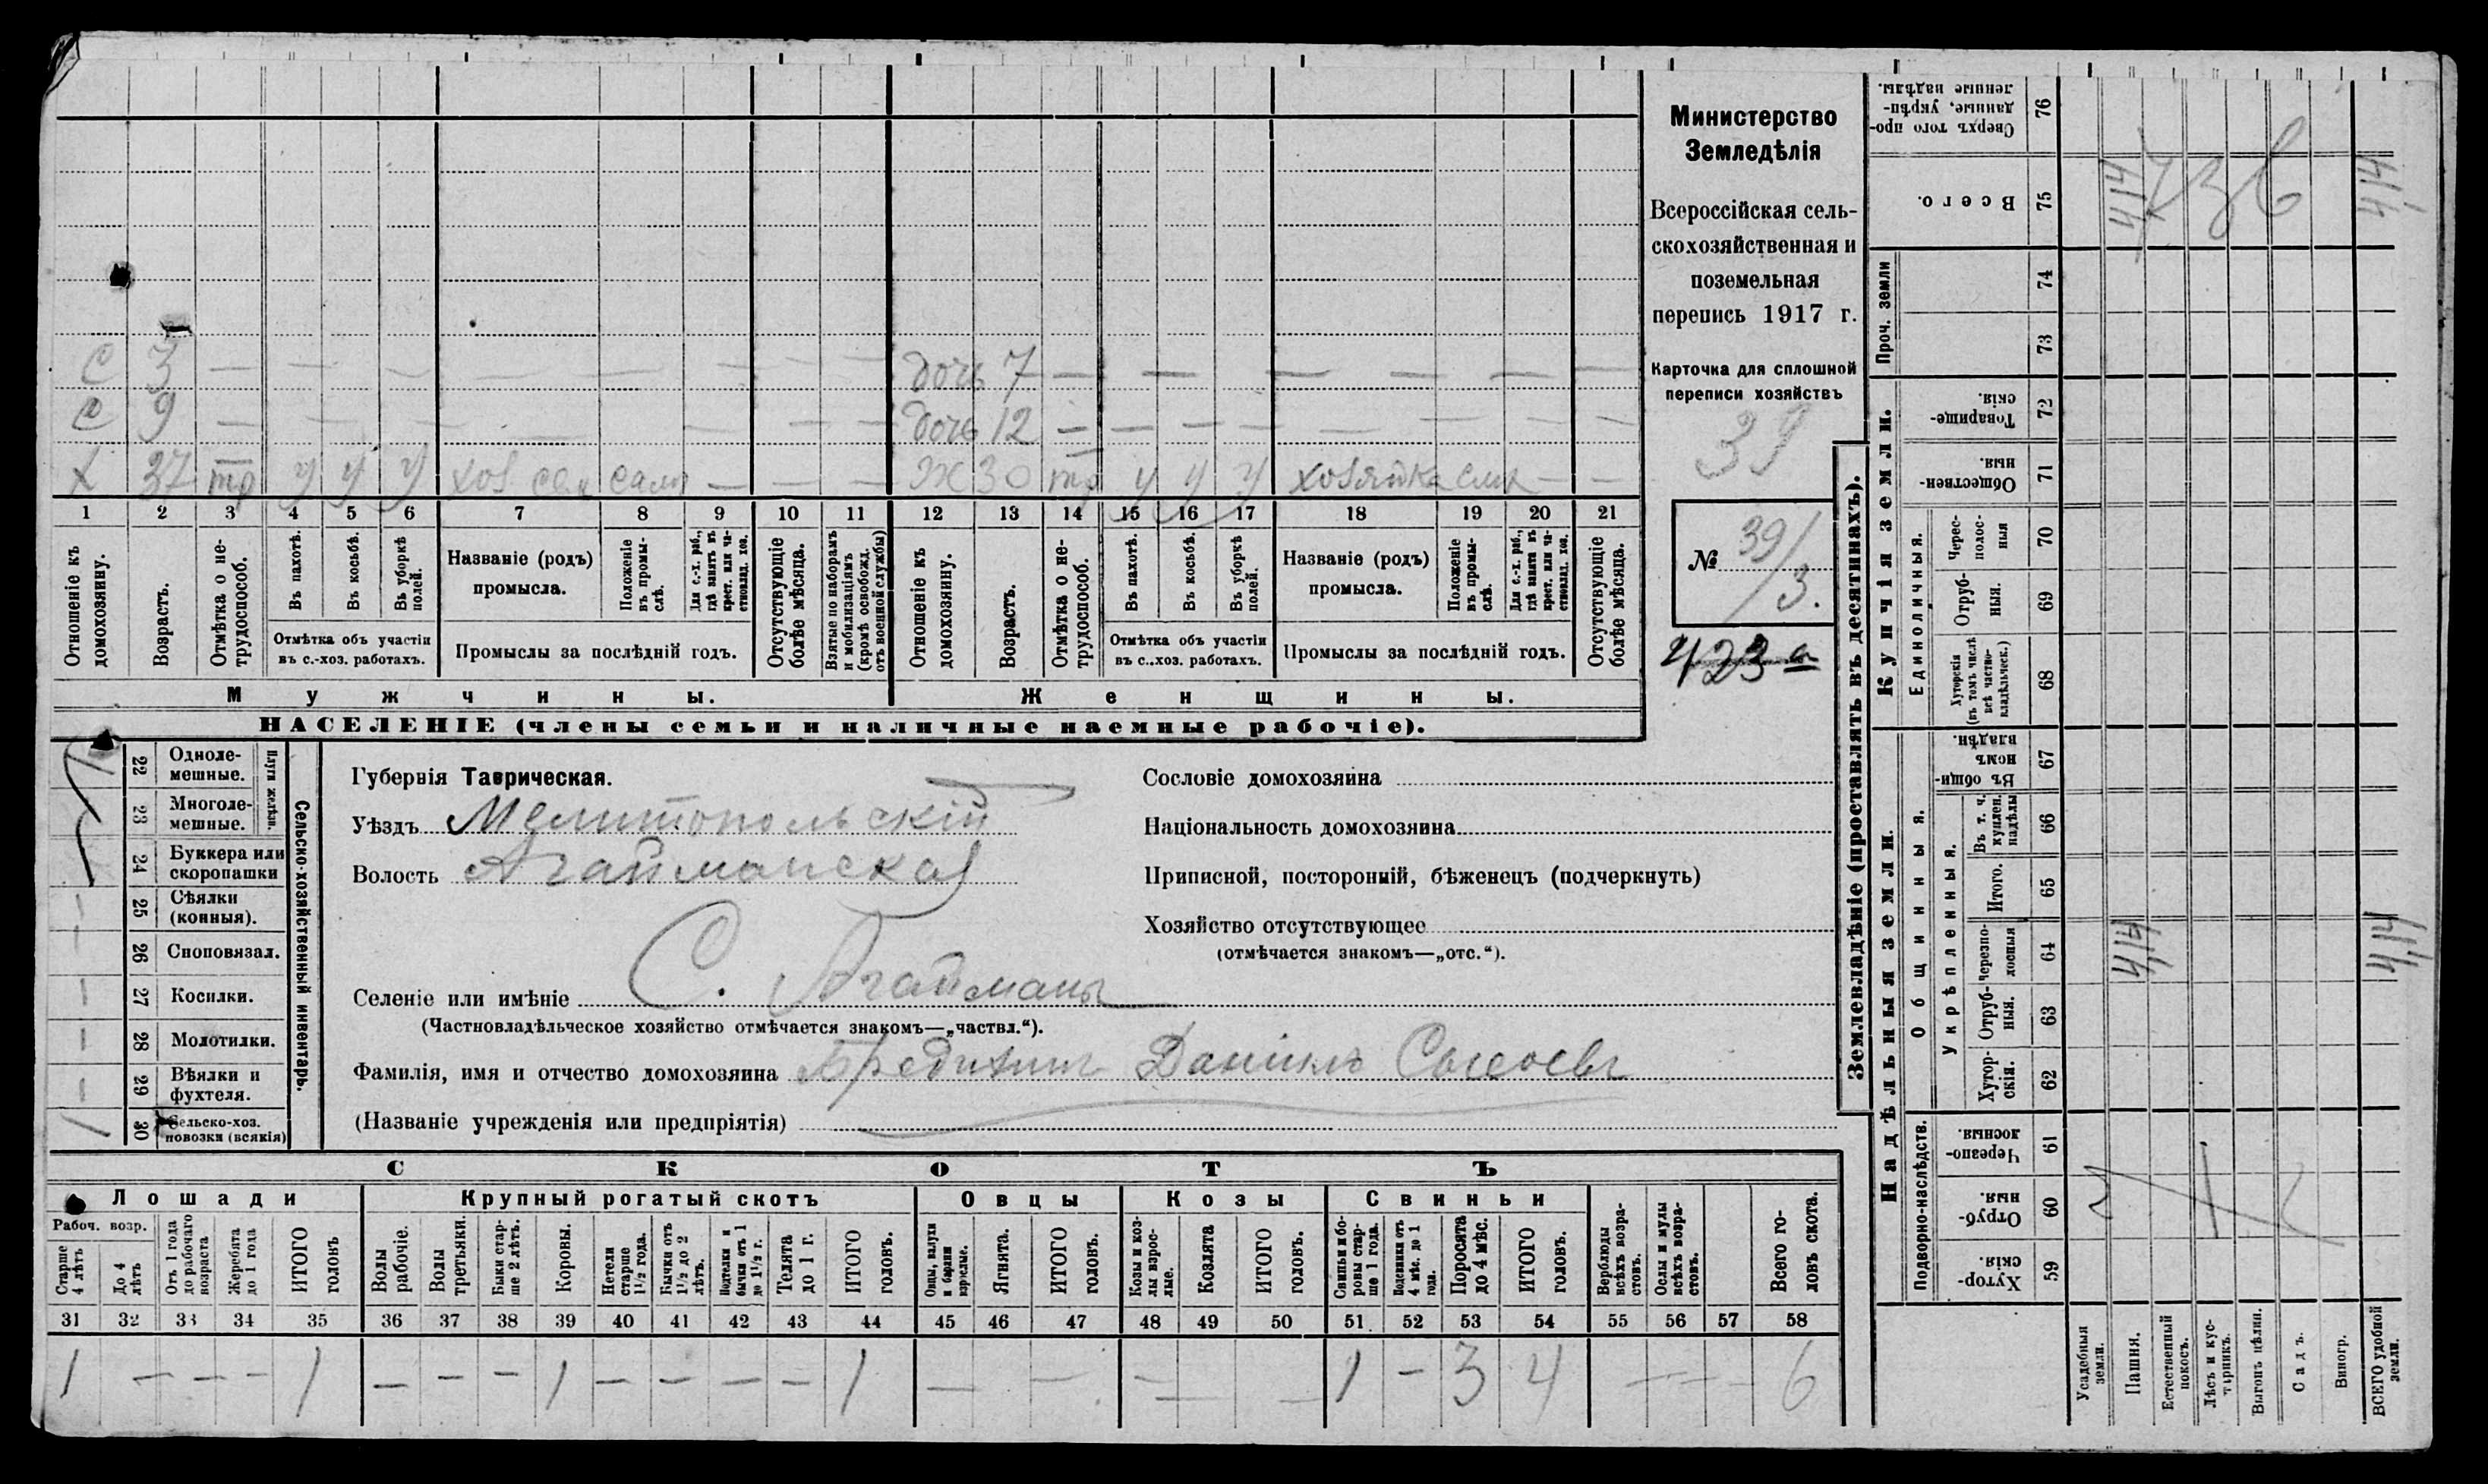 С 3 — — — — — — — — — дочь 7 — — — — — — —
С 9 — — — — — — — — — дочь 12 — — — — — — — —
Х 37 тр у у у хоз сам — — — Ж 30 тр у у у хозяйка — —
1 2 3 4 5 6 7 8 9 10 11 12 13 14 15 16 17 18 19 20 21
Отношеніе къ домохозяину.
Возрастъ.
Отмѣтка о не-
трудоспособ.
Въ пахотѣ.
Въ косьбѣ.
Въ уборкѣ
полей.
Отмѣтка объ участіи
въ с.-хоз. работахъ.
Названіе (родъ)
промысла.
Положеніе
въ промы-
слѣ.
Для с.-х. раб.,
гдѣ занятъ въ
крест. или ча-
стновлад. хоз.
Промыслы за послѣдній годъ.
Отсутствующіе
болѣе мѣсяца.
Взятые по наборамъ
и мобилизаціямъ
(кромѣ освобожд.
отъ военной службы)
Отношеніе къ
домохозяину.
Возрастъ.
Отмѣтка о не-
трудоспособ.
Въ пахотѣ.
Въ косьбѣ.
Въ уборкѣ
полей.
Отмѣтка объ участіи
въ с..хоз. работахъ.
Названіе (родъ)
промысла.
Положеніе
въ промы-
слѣ.
Для с.-х. раб.,
гдѣ занятъ въ
крест. или ча-
стновлад. хоз.
Промыслы за послѣдній годъ.
Отсутствующіе
болѣе мѣсяца.
Мужчины.
Женщины.
НАСЕЛЕНІЕ (члены семьи и наличные наемные рабочіе).
Министерство
Земледѣлія
Всероссійская сель-
скохозяйственная и
поземельная
перепись 1917 г.
Карточка для сплошной
переписи хозяйствъ
39
№ 39/3.
423а
22 Однолe-
мешные.
23 Многоле-
мешные.
Плуги желѣзн.
24 Буккера или
скоропашки
25 Сѣялки
(конныя).
26 Сноповязал.
27 Косилки.
28 Молотилки.
29 Вѣялки и
фухтеля.
30 Сельско-хоз.
повозки (всякія)
1
Сельско-хозяйственный инвентарь.
Губернія Таврическая.
Уѣздъ Мелитопольскій
Волость Агайманская
Селеніе или имѣніе С. Агайманы
(Частновладѣльческое хозяйство отмѣчается знакомъ—„частвл.“).
Фамилія, имя и отчество домохозяина Данiилъ
(Названіе учрежденія или предпріятія)
Сословіе домохозяина
Національность домохозяина
Приписной, посторонній, бѣженецъ (подчеркнуть)
Хозяйство отсутствующее
(отмѣчается знакомъ—„отс.“).
СКОТЪ
Лошади
Крупный рогатый скотъ
Овцы
Козы
Свиньи
Рабоч. возр.
Старше
4 лѣтъ
До 4
лѣтъ
Отъ 1 года
до рабочаго
возраста
Жеребята
до 1 года
ИТОГО
головъ
Волы
рабочіе.
Волы
третьяки.
Быки стар-
ше 2 лѣтъ.
Коровы.
Нетели
старше
1½ года.
Бычки отъ
1½ до 2
лѣтъ.
Подтелки и
бычки отъ 1
до 1½ г.
Телята
до 1 г.
ИТОГО
головъ.
Овцы, валухи
и бараны
взрослые.
Ягнята.
ИТОГО
головъ.
Козы и коз-
лы взрос-
лые.
Козлята
ИТОГО
головъ.
Свиньи и бо-
ровы стар-
ше 1 года.
Подсвинки отъ
4 мѣс. до 1
года.
Поросята
до 4 мѣс.
ИТОГО
головъ.
Верблюды
всѣхъ возра-
стовъ.
Ослы и мулы
всѣхъ возра-
стовъ.
Всего го-
ловъ скота.
31 32 33 34 35 36 37 38 39 40 41 42 43 44 45 46 47 48 49 50 51 52 53 54 55 56 57 58
1 — — — 1 — — — 1 — — — — 1 — — — — — 1 — 3 4 — — — 6
Землевладѣніе (проставлять въ десятинахъ).
Надѣльныя земли.
Купчія земли.
Проч. земли
Подворно-наслѣдств.
Общинныя.
Укрѣпленныя.
Единоличныя.
59 Хутор-
скія.
60 Отруб-
ныя.
61 Черезпо-
лосныя.
62 Хутор-
скія.
63 Отруб-
ныя.
64 Черезпо-
лосныя
4,14 4,14
65 Итого.
66 Въ т. ч.
куплен.
надѣлы
67 Въ общин-
номъ
владѣн.
68 Хуторскія
(въ томъ числѣ
всѣ частно-
владѣльческ.)
69 Отруб-
ныя.
70 Черес-
полос-
ныя
71 Обществен-
ныя.
72 Товарище-
скія.
73
74
75 Всего.
4,14 4,14
76 Сверхъ того про-
данные, укрѣп-
ленные надѣлы.
Усадебныя
земли.
Пашня.
Естественный
покосъ.
Лѣсъ и кус-
тарникъ.
Выгонъ цѣлин.
Садъ.
Виногр.
ВСЕГО удобной
земли.